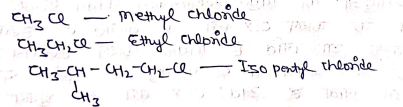 CH3 Cl — Methyl chloride
CH3CH2Cl — Ethyl chloride
CH3-CH-CH2-CH2-Cl — Iso pentyl chloride
CH3